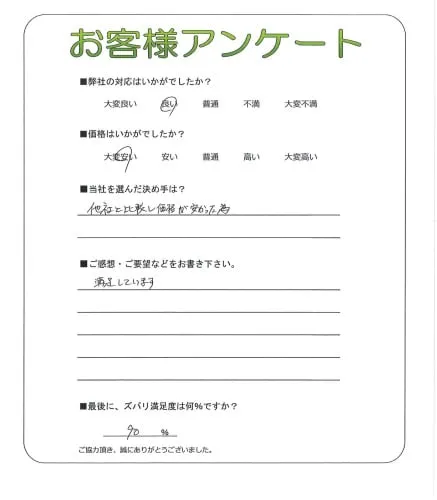 お客様アンケート
■弊社の対応はいかがでしたか？
大変良い 良い 普通 不満 大変不満
■価格はいかがでしたか？
大変安い 安い 普通 高い 大変高い
■当社を選んだ決め手は？
他社と比較し価格が安かった為
■ご感想・ご要望などをお書き下さい。
満足しています
■最後に、ズバリ満足度は何%ですか？
90 %
ご協力頂き、誠にありがとうございました。